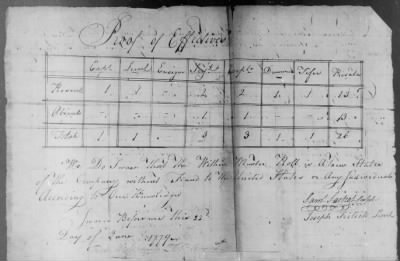 Proof of Effectives
Capt Lieut Ensign Serjt Corpl Drumm Fifer Privates
Present 1 1 1 2 1 1 13
Absent 1 13
Total 1 1 3 3 1 1 26
We Do Swear that the Within Muster Roll is a True State
of the Company without Fraud to the United States or Any Individual
According to Our Knowledge
Sworn Before me this 22d
Day of June 1779
Joseph Lieut